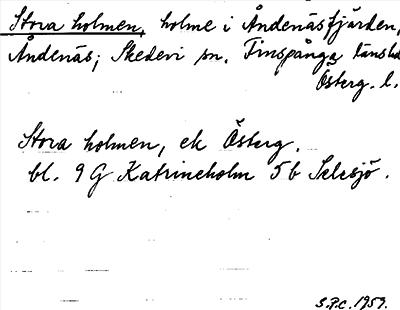 Stora holmen, holme i Ändenäsfjärden,
Ändenäs; Skedevi sn. Finspånga länsbd
Österg. l.
Stora holmen, ek Österg.
bl. 9 G Katrineholm 5 b Selesjö.
S.P.C. 1959.